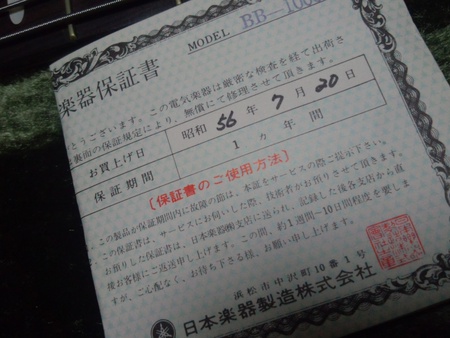 MODEL BB-1000
楽器保証書
とうございます。この電気楽器は厳密な検査を経て出荷さ
裏面の保証規定により、無償にて修理させて頂きます。
お買上げ日 昭和 56年 7月 20日
保証期間 1ヶ年間
〔保証書のご使用方法〕
この製品が保証期間内に故障の節は、本証をサービスの際ご提示下さい。
この保証書は、サービスにお伺いした際、技術者がお預りさせて頂きます。
お預りした保証書は、日本楽器㈱支店に送られ、記録した後各支店から直
後お客様にご返送申し上げます。この間、約1週間〜10日間程度を要しま
すが、ご心配なく、お持ち下さる様、お願い申し上げます。
浜松市中沢町10番1号
日本楽器製造株式会社